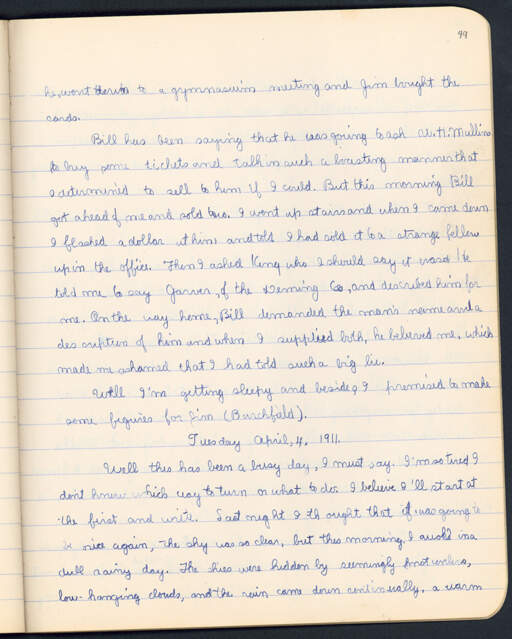 99
he went down to a gymnasium meeting and Jim bought the
cards.
Bill has been saying that he was going to ask W. H. Mullins
to buy some tickets and talk in such a boasting manner that
I determined to sell to him if I could. But this morning Bill
got ahead of me and sold two. I went up stairs and when I came down
I flashed a dollar at him and told I had sold it to a strange fellow
up in the office. Then I asked King who I should say it was & he
told me to say Garver, of the Deming Co, and described him for
me. On the way home, Bill demanded the man's name and a
description of him and when I supplied both, he believed me, which
made me ashamed that I had told such a big lie.
Well I'm getting sleepy and besides I promised to make
some figures for Jim (Burchfield).
Tuesday April, 4, 1911.
Well this has been a busy day, I must say. I'm so tired I
don't know which way to turn or what to do. I believe I'll start at
the first and write. Last night I thought that it was going to
be nice again, the sky was so clear, but this morning, I awoke in a
dull rainy day. The skies were hidden by seemingly motionless,
low-hanging clouds, and the rain came down continually, a warm